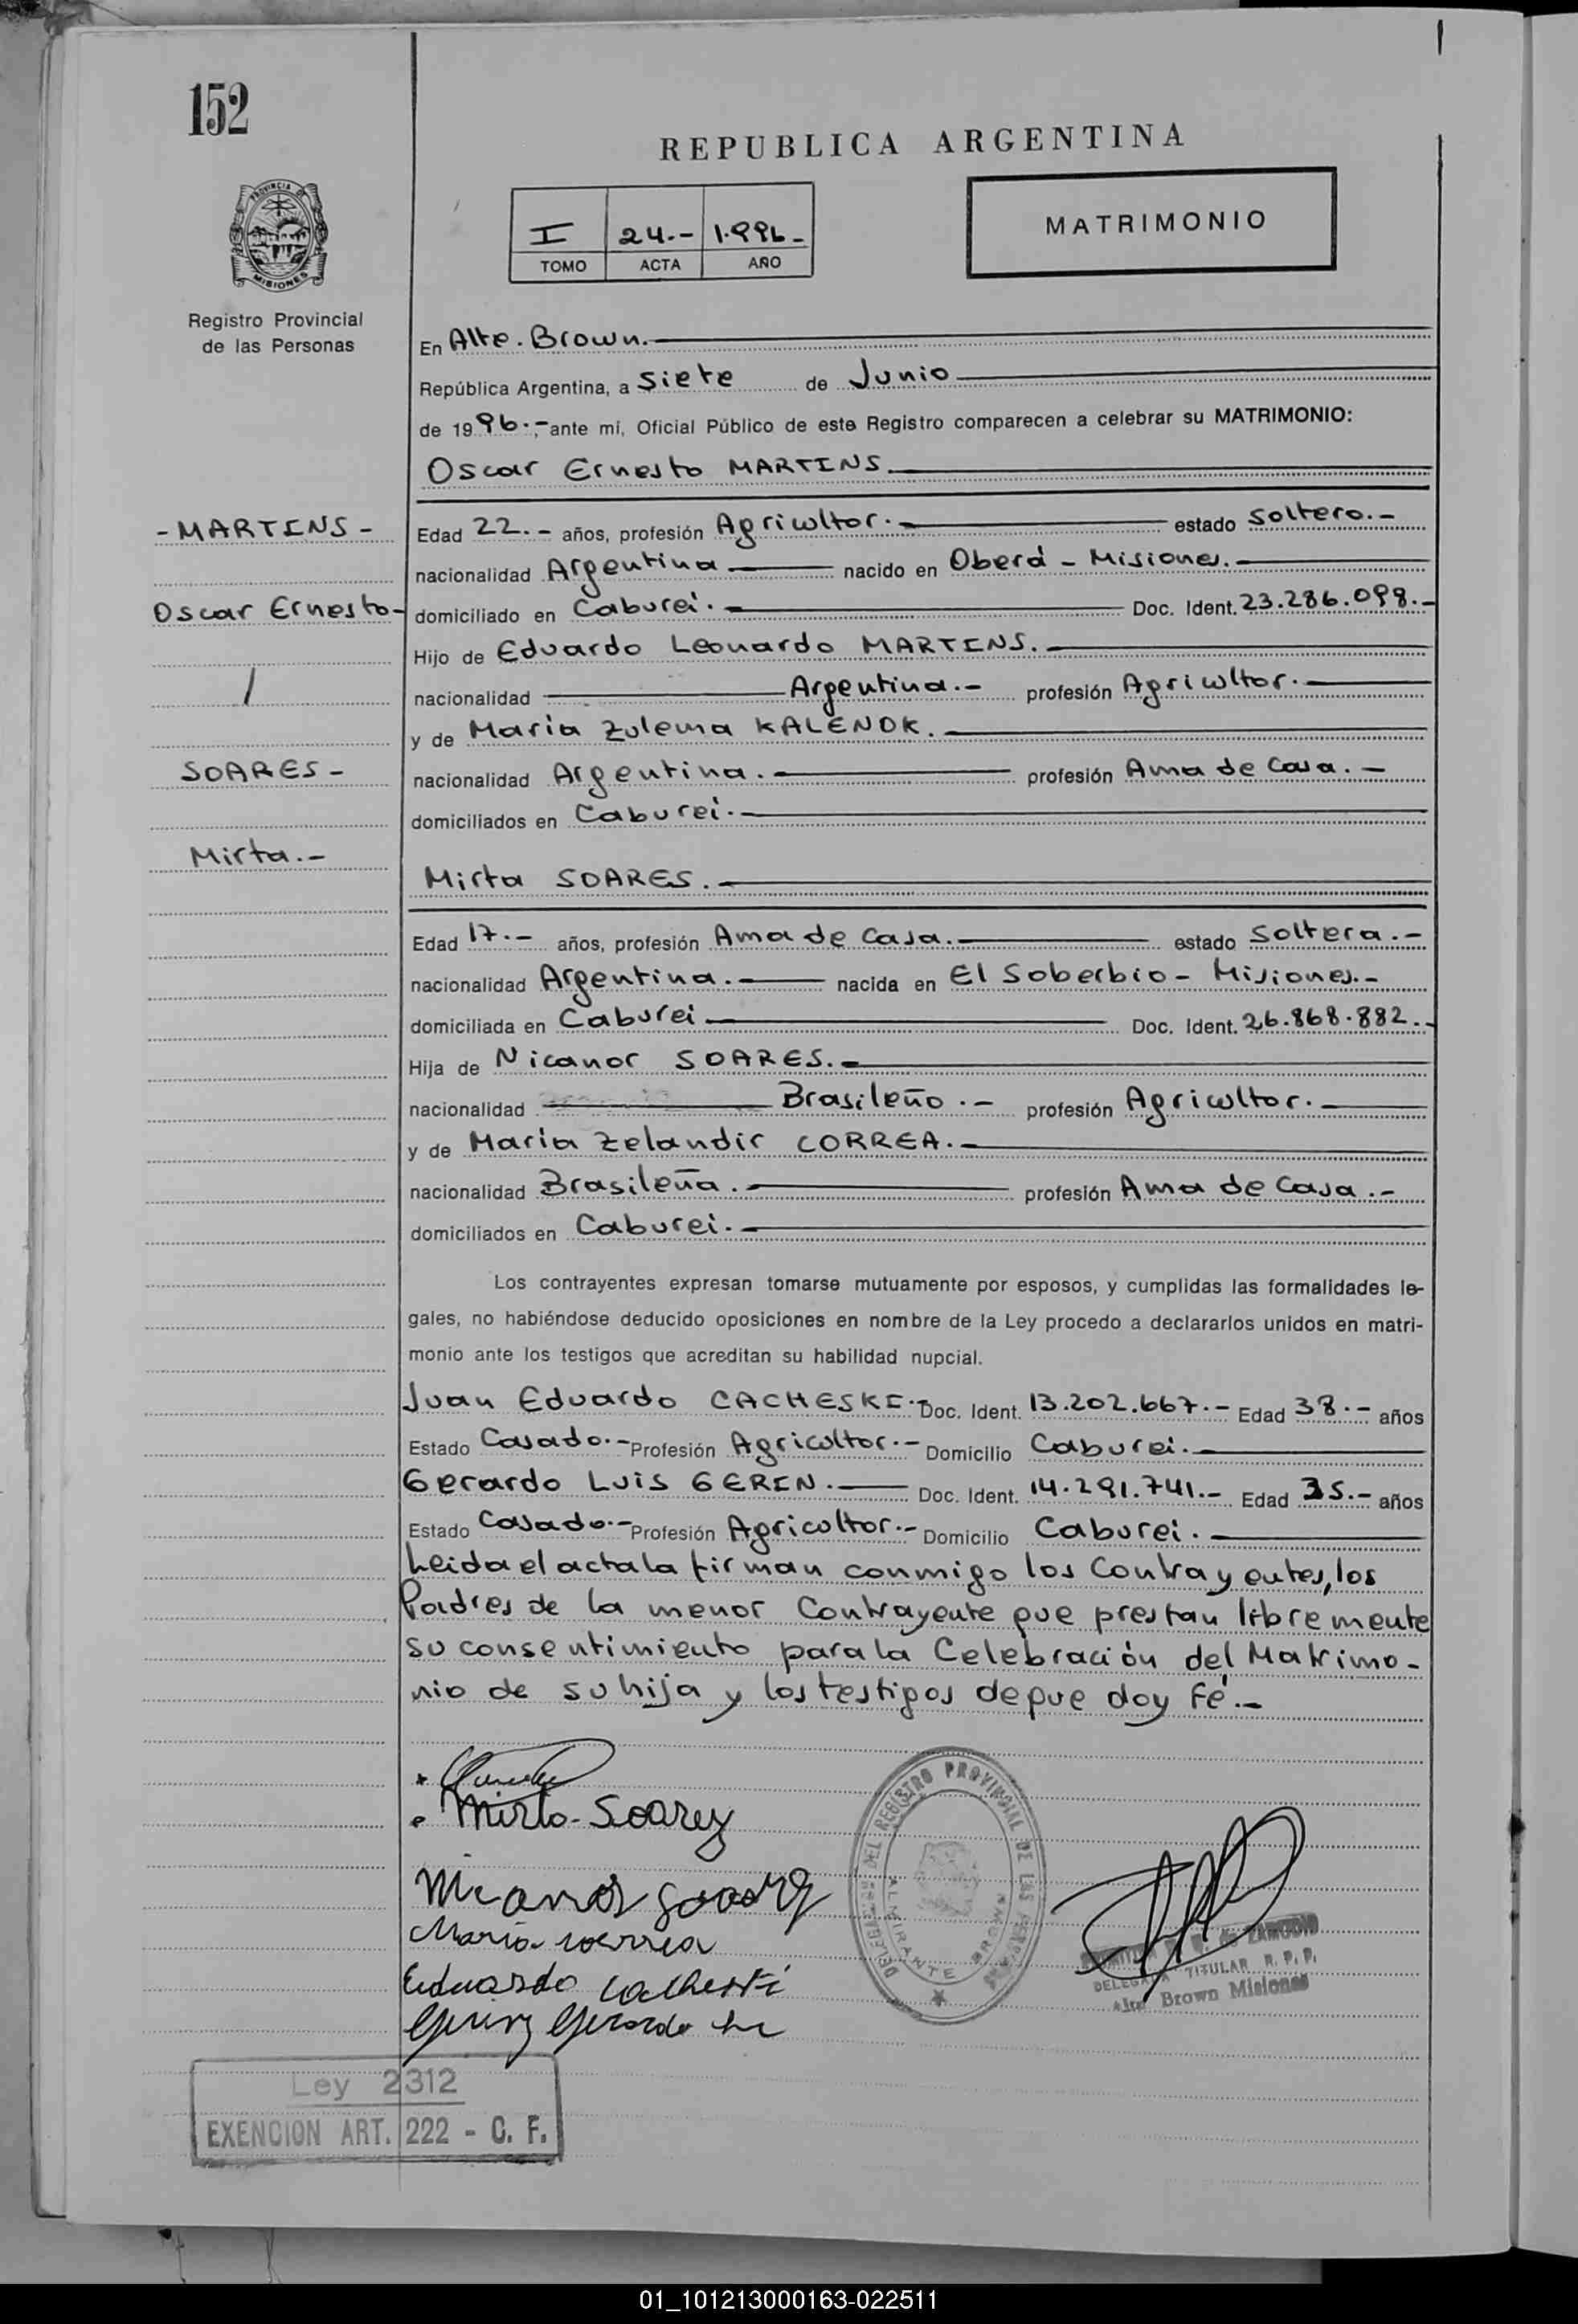 152
REPUBLICA ARGENTINA
PROVINCIA DE
MISIONES
I 24.- 1.996-
TOMO ACTA AÑO
MATRIMONIO
Registro Provincial
de las Personas
En Alte. Brown.
República Argentina, a siete de Junio
de 1996.-, ante mí, Oficial Público de este Registro comparecen a celebrar su MATRIMONIO:
Oscar Ernesto MARTINS
- MARTINS -
Edad 22.- años, profesión Agricultor.- estado Soltero.-
nacionalidad Argentina nacido en Oberá - Misiones.-
Oscar Ernesto-
domiciliado en Caburei.- Doc. Ident. 23.286.098.-
Hijo de Eduardo Leonardo MARTINS.
/
nacionalidad Argentina.- profesión Agricultor.
y de Maria Zulema KALENOK.
SOARES -
nacionalidad Argentina. profesión Ama de Casa.-
domiciliados en Caburei.-
Mirta.-
Mirta SOARES.-
Edad 17.- años, profesión Ama de Casa.- estado Soltera.-
nacionalidad Argentina. nacida en El Soberbio - Misiones.-
domiciliada en Caburei Doc. Ident. 26.868.882.-
Hija de Nicanor SOARES.-
nacionalidad Brasileño.- profesión Agricultor.-
y de Maria Zelandir CORREA.-
nacionalidad Brasileña.- profesión Ama de Casa.-
domiciliados en Caburei.-
Los contrayentes expresan tomarse mutuamente por esposos, y cumplidas las formalidades le-
gales, no habiéndose deducido oposiciones en nombre de la Ley procedo a declararlos unidos en matri-
monio ante los testigos que acreditan su habilidad nupcial.
Juan Eduardo CACHESKI.- Doc. Ident. 13.202.667.- Edad 38.- años
Estado Casado.- Profesión Agricultor.- Domicilio Caburei.-
Gerardo LUIS GERIN. Doc. Ident. 14.291.741.- Edad 35.- años
Estado Casado.- Profesión Agricoltor.- Domicilio Caburei.
Leida el acta la firman conmigo los Contrayentes, los
Padres de la menor Contrayente que prestan libremente
su consentimiento para la Celebración del Matrimo-
nio de su hija y los testigos de que doy Fé.-
Mirta Soarez
Nicanor Soarez
Maria correa
Eduardo Cacheski
Gerin Gerardo Lu
DELEGACION DEL REGISTRO PROVINCIAL DE LAS PERSONAS
ALMIRANTE BROWN
DE ZAMUDIO
DELEGADA TITULAR R. P. P.
Alte. Brown Misiones
Ley 2312
EXENCION ART. 222 - C. F.
01_101213000163-022511